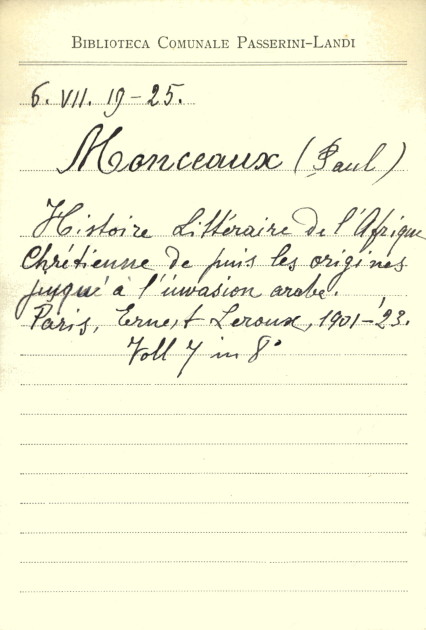 BIBLIOTECA COMUNALE PASSERINI-LANDI
6. VII. 19-25.
Monceaux (Paul)
Histoire Littéraire de l'Afrique
Chrétienne de puis les origines
jusqu'à l'invasion arabe.
Paris, Ernest Leroux, 1901-'23.
Voll 7 in 8°